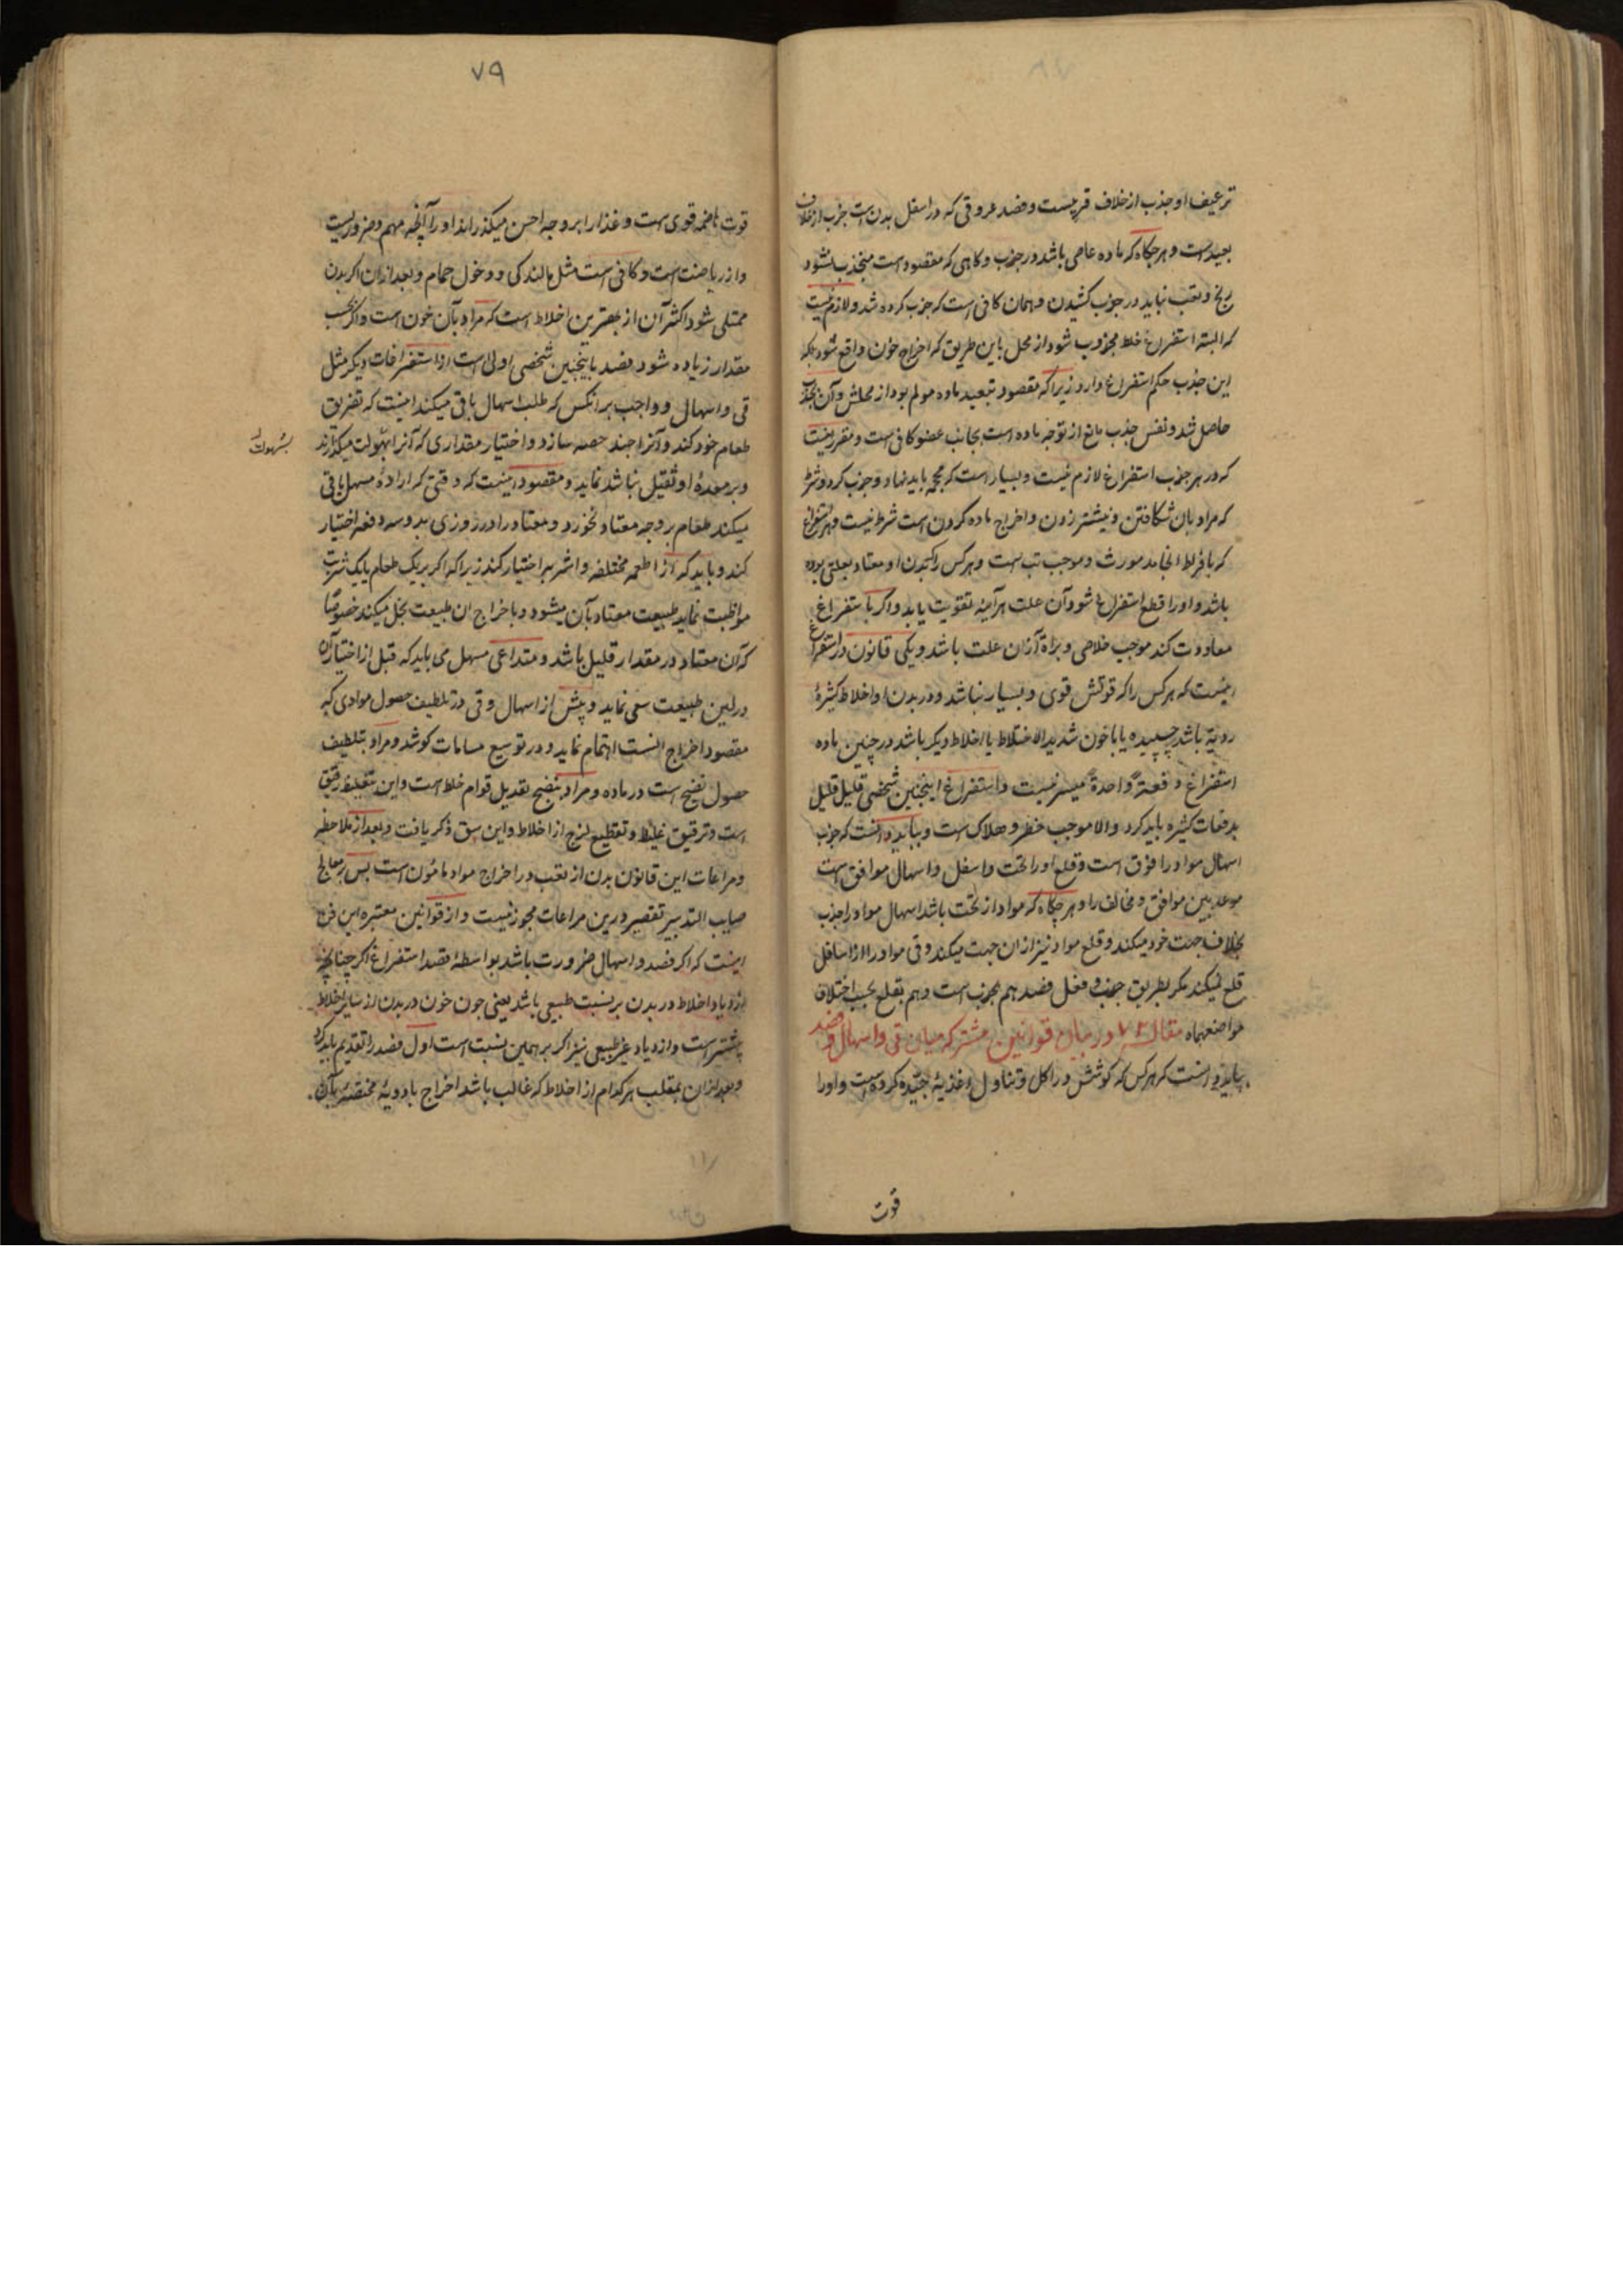 ترعیف او جذب از خلاف قریبست و فصد عروقی که در اسفل بدن است جذب از خلاف
بعید است و هرجکاه که ماده عاصی باشد در جذب و کاهی که مقصود است منجذب نشود
رنج و تعب نباید در جذب کشیدن و همان کافی است که جذب کرده شد و لازم نیست
که البته استفراغ خلط مجذوب شود از محل باین طریق که اخراج خون واقع شود بلکه
این جذب حکم استفراغ دارد زیرا که مقصود تبعید ماده مولم بود از محلش و آن بجذب
حاصل شد و نفس جذب مانع از توجه ماده است بجانب عضو کافی است و مقرر اینست
که در هر جذب استفراغ لازم نیست و بسیار است که محجمه باید نهاد و جذب کرد و شرط
که مراد بان شکافتن و نیشتر زدن و اخراج ماده کردن است شرط نیست و هر استفراغ
که بافراط انجامد مورث و موجب تب است و هر کس را که بدن او معتاد بعلتی بوده
باشد و او را قطع استفراغ شود آن علت هر آینه تقویت یابد و اکر باستفراغ
معاودت کند موجب خلاصی و براة از ان علت باشد و یکی قانون در استفراغ
اینست که هر کس را که قوتش قوی و بسیار نباشد و در بدن او اخلاط کثیرهٔ
ردیّه باشد چسپیده یا با خون شدید الاختلاط یا اخلاط دیکر باشد در چنین ماده
استفراغ دفعةً واحدةً میسر نیست و استفراغ اینچنین شخصی قلیل قلیل
بدفعات کثیره باید کرد والا موجب خطر و هلاک است و بباید دانست که جذب
اسهال مواد را فوق است و قلع او را تحت و اسفل و اسهال موافق است
موعد بین موافق و مخالف را و هرجکاه که مواد از تحت باشد اسهال مواد را جذب
بخلاف جهت خود میکند و قلع مواد نیز از ان جهت میکند و قی مواد را از اسافل
قلع نمیکند مکر بطریق جذب و فعل فصد هم بجذب است و هم بقلع بحسب اختلاف
مواضعهما مقاله ۷۲ در بیان قوانین مشترکه میان قی و اسهال و فصد
بباید دانست که هر کس که کوشش در اکل و تناول اغذیهٔ جیّده کرده است و او را
قوت
۷۹
قوت هاضمه قوی است و غذا را بر وجه احسن میکذراند او را آنچه مهم و ضروریست
و از ریاضت است و کافی است مثل مالندکی و دخول حمام و بعد از ان اکر بدن
ممتلی شود اکثر آن از بهترین اخلاط است که مراد بآن خون است و اکر بحسب
مقدار زیاده شود فصد باینچنین شخصی اولی است از استفراغات دیکر مثل
قی و اسهال و واجب بر آنکس که طلب اسهال یا قی میکند اینست که تفریق
طعام خود کند و آنرا چند حصه سازد و اختیار مقداری که آنرا بسهولت میکذراند
بسهولت
و بر معدهٔ او ثقیل نباشد نماید و مقصود اینست که وقتی که ارادهٔ مسهل یا قی
میکند طعام بر وجه معتاد نخورد و معتاد را در روزی بدو سه دفعه اختیار
کند و باید که از اطعمه مختلفه و اشربه اختیار کند زیرا که اکر بر یک طعام یا یک شربت
مواظبت نماید طبیعت معتاد بآن میشود و باخراج ان طبیعت بخل میکند خصوصًا
که آن معتاد در مقدار قلیل باشد و متداعی مسهل می باید که قبل از اختیار آن
در لین طبیعت سعی نماید و پیش از اسهال و قی در تلطیف حصول موادی که
مقصود اخراج آنست اهتمام نماید و در توسیع مسامات کوشد و مراد بتلطیف
حصول نضج است در ماده و مراد بنضج تعدیل قوام خلط است و این تغلیظ رقیق
است و ترقیق غلیظ و تقطیع لزج از اخلاط و این سبق ذکر یافت و بعد از ملاحظه
و مراعات این قانون بدن از تعب در اخراج مواد مامون است پس بر معالج
صایب التدبیر تقصیر درین مراعات مجوز نیست و از قوانین معتبره این فن
اینست که اکر فصد و اسهال ضرورت باشد بواسطهٔ قصد استفراغ اکر چنانچه
ازدیاد اخلاط در بدن بر نسبت طبیعی باشد یعنی چون خون در بدن از سایر اخلاط
بیشتر است و ازدیاد غیر طبیعی نیز اکر بر همین نسبت است اول فصد را تقدیم باید کرد
و بعد از ان بمقلب هر کدام از اخلاط که غالب باشد اخراج بادویهٔ مختصهٔ بآن